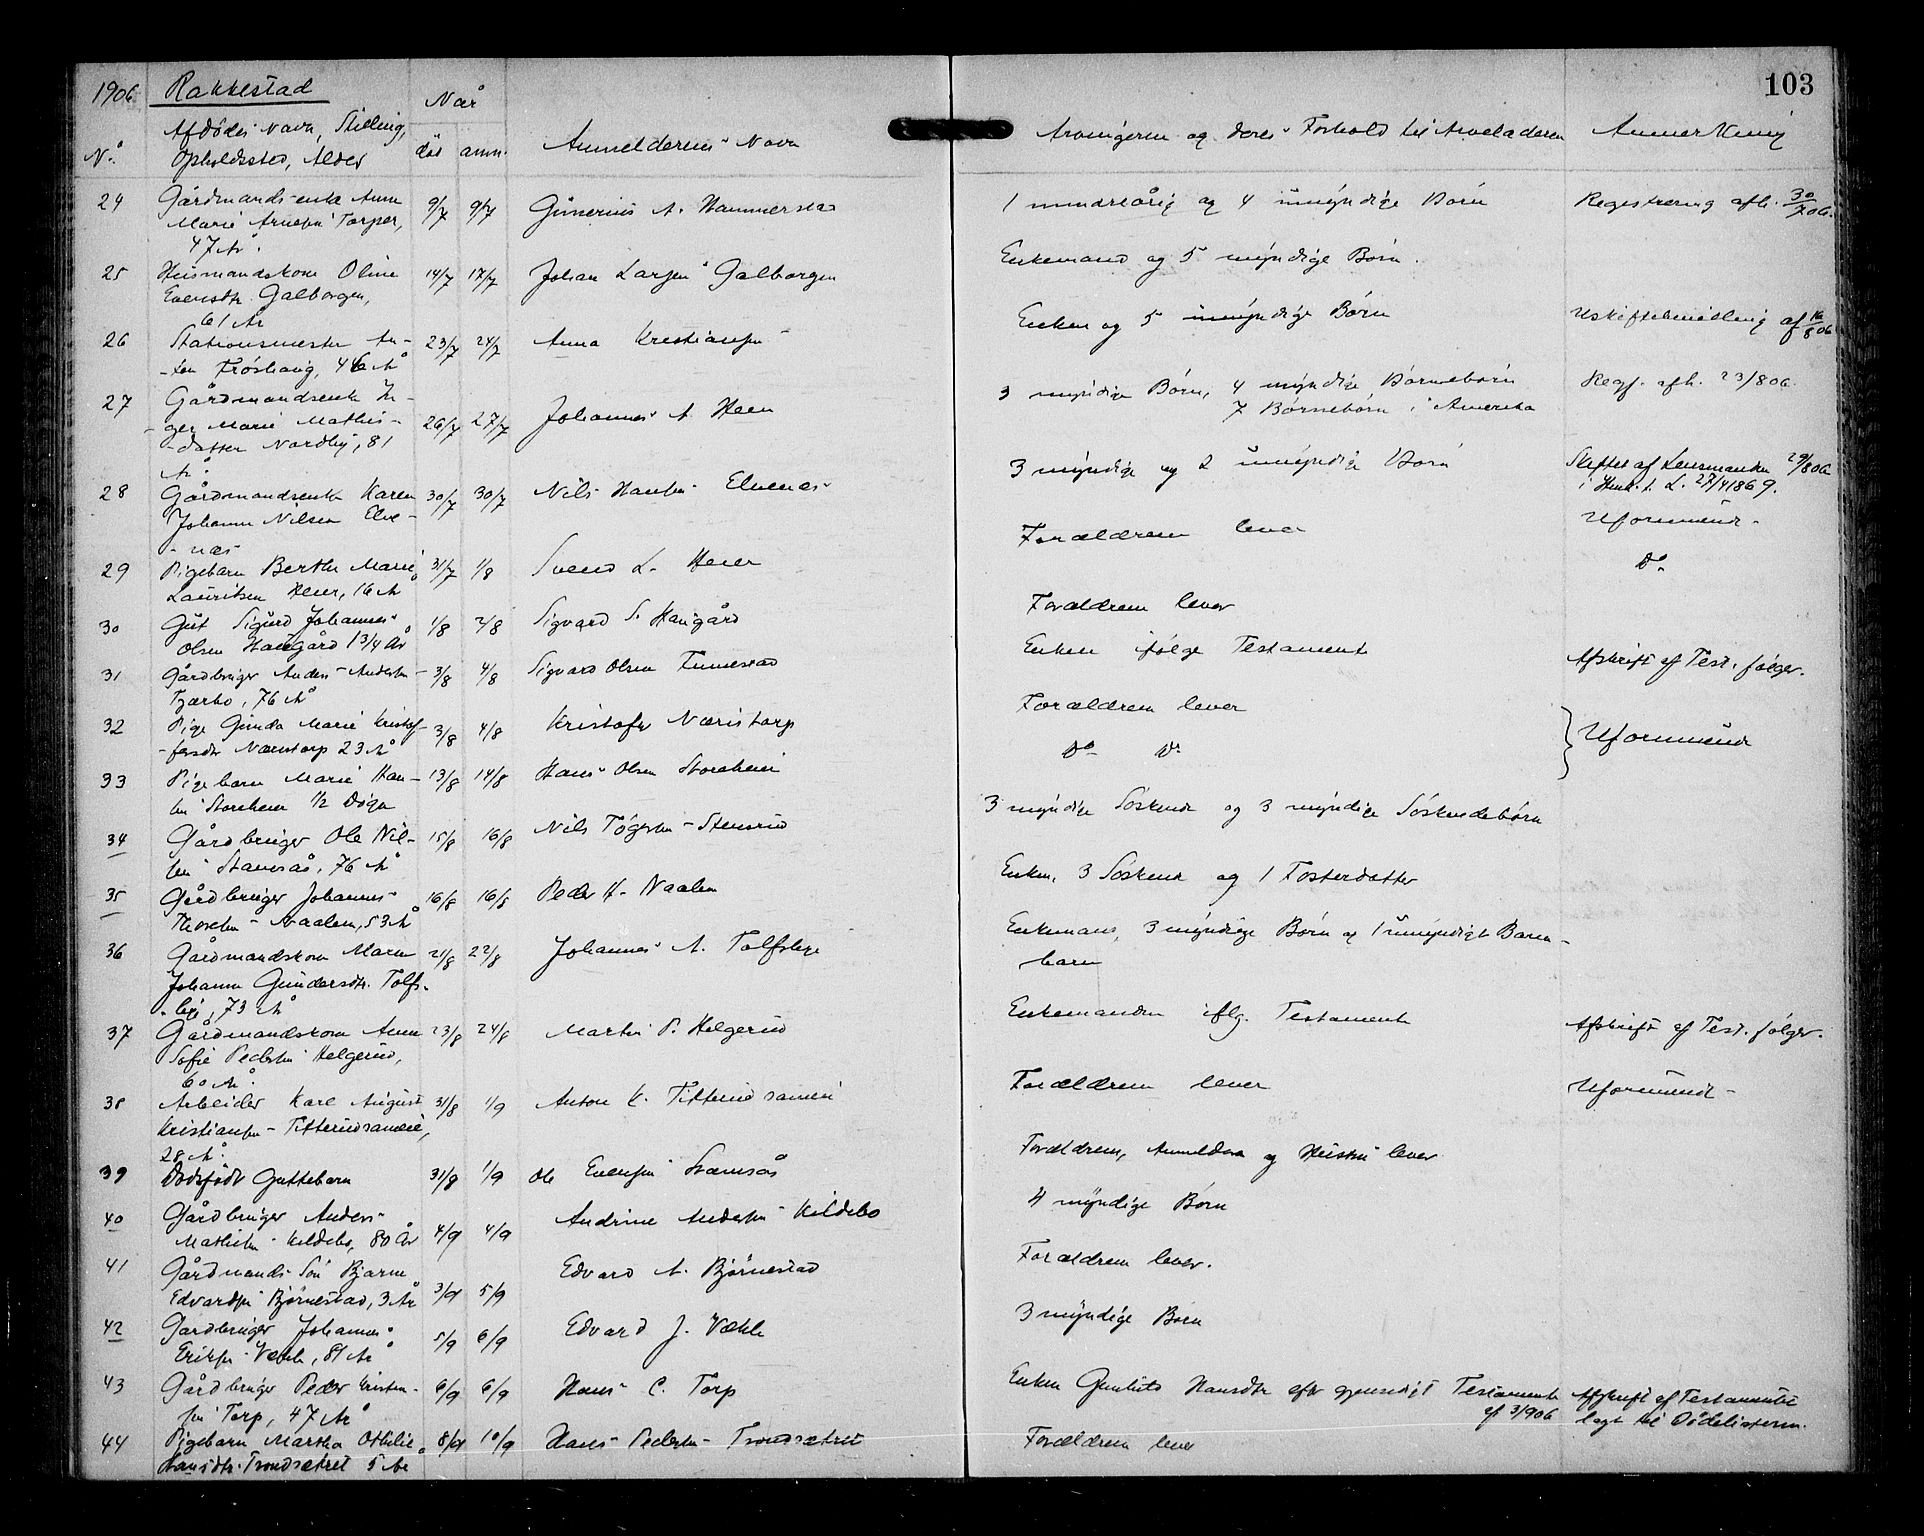 1906 Rakkestad
103
Når
Afdødes Navn, Stilling,
No. Opholdssted, Alder
død anm.
Anmelderens Navn
Arvingerne og deres Forhold til Arveladeren
Anmerkning
24 Gårdmandsenke Anne 9/7 9/7 Gunerius A. Hammerstad
Marie Arnesen Torper,
47 År.
1 mindreårig og 4 umyndige Børn
Registrering afh. 30/7 06.
25 Husmandskone Oline 14/7 17/7 Johan Larsen Galborgen
Evensdtr. Galborgen,
61 År
Enkemand og 5 myndige Børn.
26 Stationsmester An- 23/7 24/7 Anna Kristiansen
-ton Frøshaug, 46 År
Enken og 5 umyndige Børn
Uskiftebevilling af 16/8 06
27 Gårdmandsenke In- 26/7 27/7 Johannes A. Heen
-ger Marie Mathis-
-datter Nordby, 81
År.
3 myndige Børn, 4 myndige Børnebørn
7 Børnebørn i Amerika
Regf. afh. 23/8 06.
28 Gårdmandsenke Karen 30/7 30/7 Nils Hansen Elvenes
Johanne Nilsen Elve-
-næs
3 myndige og 2 umyndige Børn
Skiftet af Lensmanden 29/8 06
i Henh. t. L. 27/4 1869.
29 Pigebarn Berthe Marie 31/7 1/8 Svend L. Heier
Lauritsen Heier, 16 År
Forældrene lever
Uformuende
30 Gut Sigurd Johannes 1/8 2/8 Sigvard S. Haugård
Olsen Haugård 1 3/4 År
Forældrene lever
Do.
31 Gårdbruger Anders Andersen 3/8 4/8 Sigvard Olsen
Tjærbo, 76 År
Enken ifølge Testament
Afskrift af Test. følger.
32 Pige Gunda Marie Kristof- 3/8 4/8 Kristofer Næristorp
-fersdtr Næristorp 23 År
Forældrene lever
Uformuende
33 Pigebarn Marie Han- 13/8 14/8 Hans Olsen Storeheier
sen Storeheier 1/2 Døgn
Do. Do.
34 Gårdbruger Ole Nil- 15/8 16/8 Nils Tøgersen Stensrud
sen Stamsås, 76 År
3 myndige Søskende og 3 myndige Søskendebørn
35 Gårdbruger Johannes 16/8 16/8 Peder H. Naalen
Thoresen Naalen, 53 År
Enken, 3 Søskende og 1 Fosterdatter
36 Gårdmandskone Maren 21/8 22/8 Johannes A. Tolfsby
Johanne Gundersdtr. Tolfs-
-by, 73 År
Enkemand, 3 myndige Børn og 1 umyndigt Barne-
barn
37 Gårdmandskone Anne 23/8 24/8 Martin P. Helgerud
Sofie Pedersen Helgerud,
60 År.
Enkemanden iflg. Testament
Afskrift af Test. følger.
38 Arbeider Karl August 31/8 1/9 Anton K. Titterudsameie
Kristiansen Titterudsameie,
28 År.
Forældrene lever
Uformuende
39 Dødfødt Guttebarn 31/8 1/9 Ole Evensen Stamsås
Forældrene, Anmelderen og Hustru lever
40 Gårdbruger Anders 4/9 4/9 Andrine Andersen Kildebo
Mathisen Kildebo, 80 År
4 myndige Børn
41 Gårdmands Søn Bjarne 3/9 5/9 Edvard A. Bjørnestad
Edvardsen Bjørnestad, 3 År
Forældrene lever.
42 Gårdbruger Johannes 5/9 6/9 Edvard J. Vækle
Eriksen Vækle, 81 År
3 myndige Børn
43 Gårdbruger Peder Kristen- 6/9 6/9 Hans C. Torp
sen Torp, 47 År
Enken Hansdtr efter gjensidigt Testamente
af 3/9 06
Afskrift af Testamentet
lagt til Dødslisterne.
44 Pigebarn Martha Othilie 8/9 10/9 Hans Pedersen Trondsætret
Hansdtr. Trondsætret 5 År
Forældrene lever